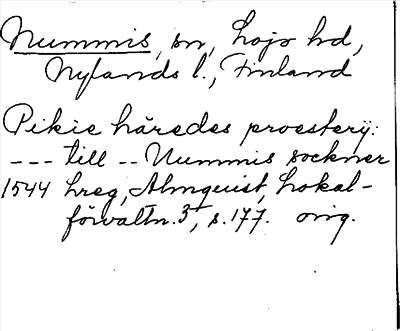 Nummis, sn, Lojo hd,
Nylands l., Finland
Pikie häredes proesterij:
--- till -- Nummis sockner
1544 hreg, Almquist, Lokal-
förvaltn. 3, s. 177. orig.